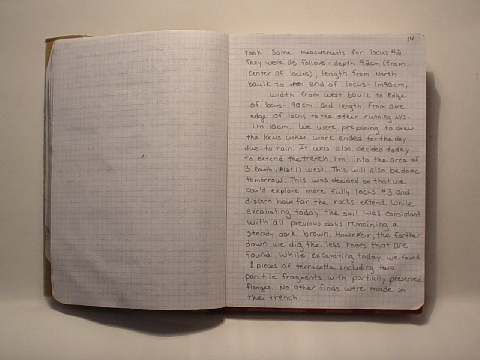 Took some measurements for locus #2
They were as follows - depth 92cm (from
center of locus), length from North
baulk to end of locus - 1m90cm,
width from west baulk to edge
of locus - 90cm and length from one
edge of locus to the other running N/S-
1m 10cm. We were preparing to draw
the locus when work ended for the day
due to rain. It was also decided today
to extend the trench 1m into the area of
3 South, 11 West. This will also be done
tomorrow. This was decided so that we
could explore more fully locus #3 and
discern how far the rocks extend. While
excavating today the soil was consistant
with all previous days remaining a
steady dark brown. However, the farther
down we dig the less roots that are
found. While excavating today we found
pieces of terracotta including two
pan tile fragments with partially preserved
flanges. No other finds were made in
the trench.